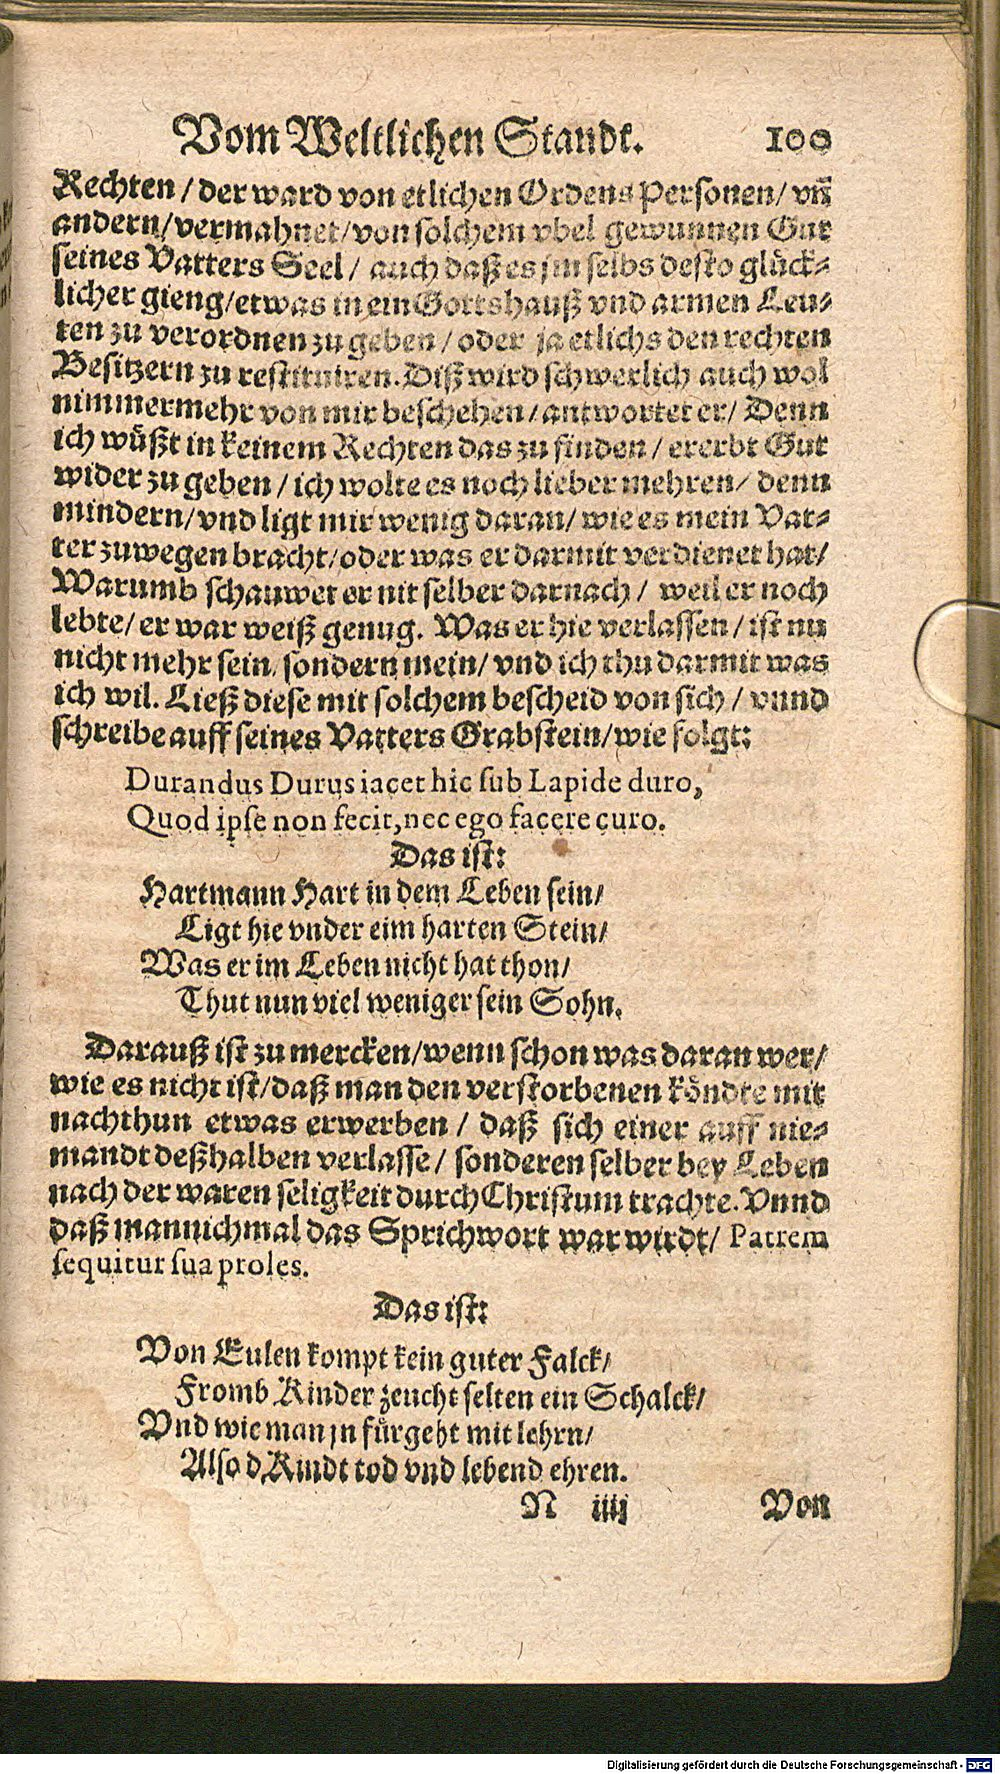 Vom Weltlichen Standt. 100
Rechten / der ward von etlichen Ordens Personen / vñ
andern / vermahnet / von solchem vbel gewunnen Gut
seines Vatters Seel / auch daß es jm selbs desto glück-
licher gieng / etwas in ein Gottshauß vnd armen Leu-
ten zu verordnen zu geben / oder ja etlichs den rechten
Besitzern zu restituiren. Diß wird schwerlich auch wol
nimmermehr von mir beschehen / antwortet er / Denn
ich wüßt in keinem Rechten das zu finden / ererbt Gut
wider zu geben / ich wolte es noch lieber mehren / denn
mindern / vnd ligt mir wenig daran / wie es mein Vat-
ter zuwegen bracht / oder was er darmit verdienet hat /
Warumb schauwet er nit selber darnach / weil er noch
lebte / er war weiß genug. Was er hie verlassen / ist nu
nicht mehr sein, sondern mein / vnd ich thu darmit was
ich wil. Ließ diese mit solchem bescheid von sich / vnnd
schreibe auff seines Vatters Grabstein / wie folgt:
Durandus Durus iacet hic sub Lapide duro,
Quod ipse non fecit, nec ego facere curo.
Das ist:
Hartmann Hart in dem Leben sein /
Ligt hie vnder eim harten Stein /
Was er im Leben nicht hat thon /
Thut nun viel weniger sein Sohn.
Darauß ist zu mercken / wenn schon was daran wer /
wie es nicht ist / daß man den verstorbenen köndte mit
nachthun etwas erwerben / daß sich einer auff nie-
mandt deßhalben verlasse / sonderen selber bey Leben
nach der waren seligkeit durch Christum trachte. Vnnd
daß mannichmal das Sprichwort war wirdt / Patrem
sequitur sua proles.
Das ist:
Von Eulen kompt kein guter Falck /
Fromb Kinder zeucht selten ein Schalck /
Vnd wie man jn fürgeht mit lehrn /
Also d Kindt tod vnd lebend ehren.
N iiij Von
Digitalisierung gefördert durch die Deutsche Forschungsgemeinschaft - DFG